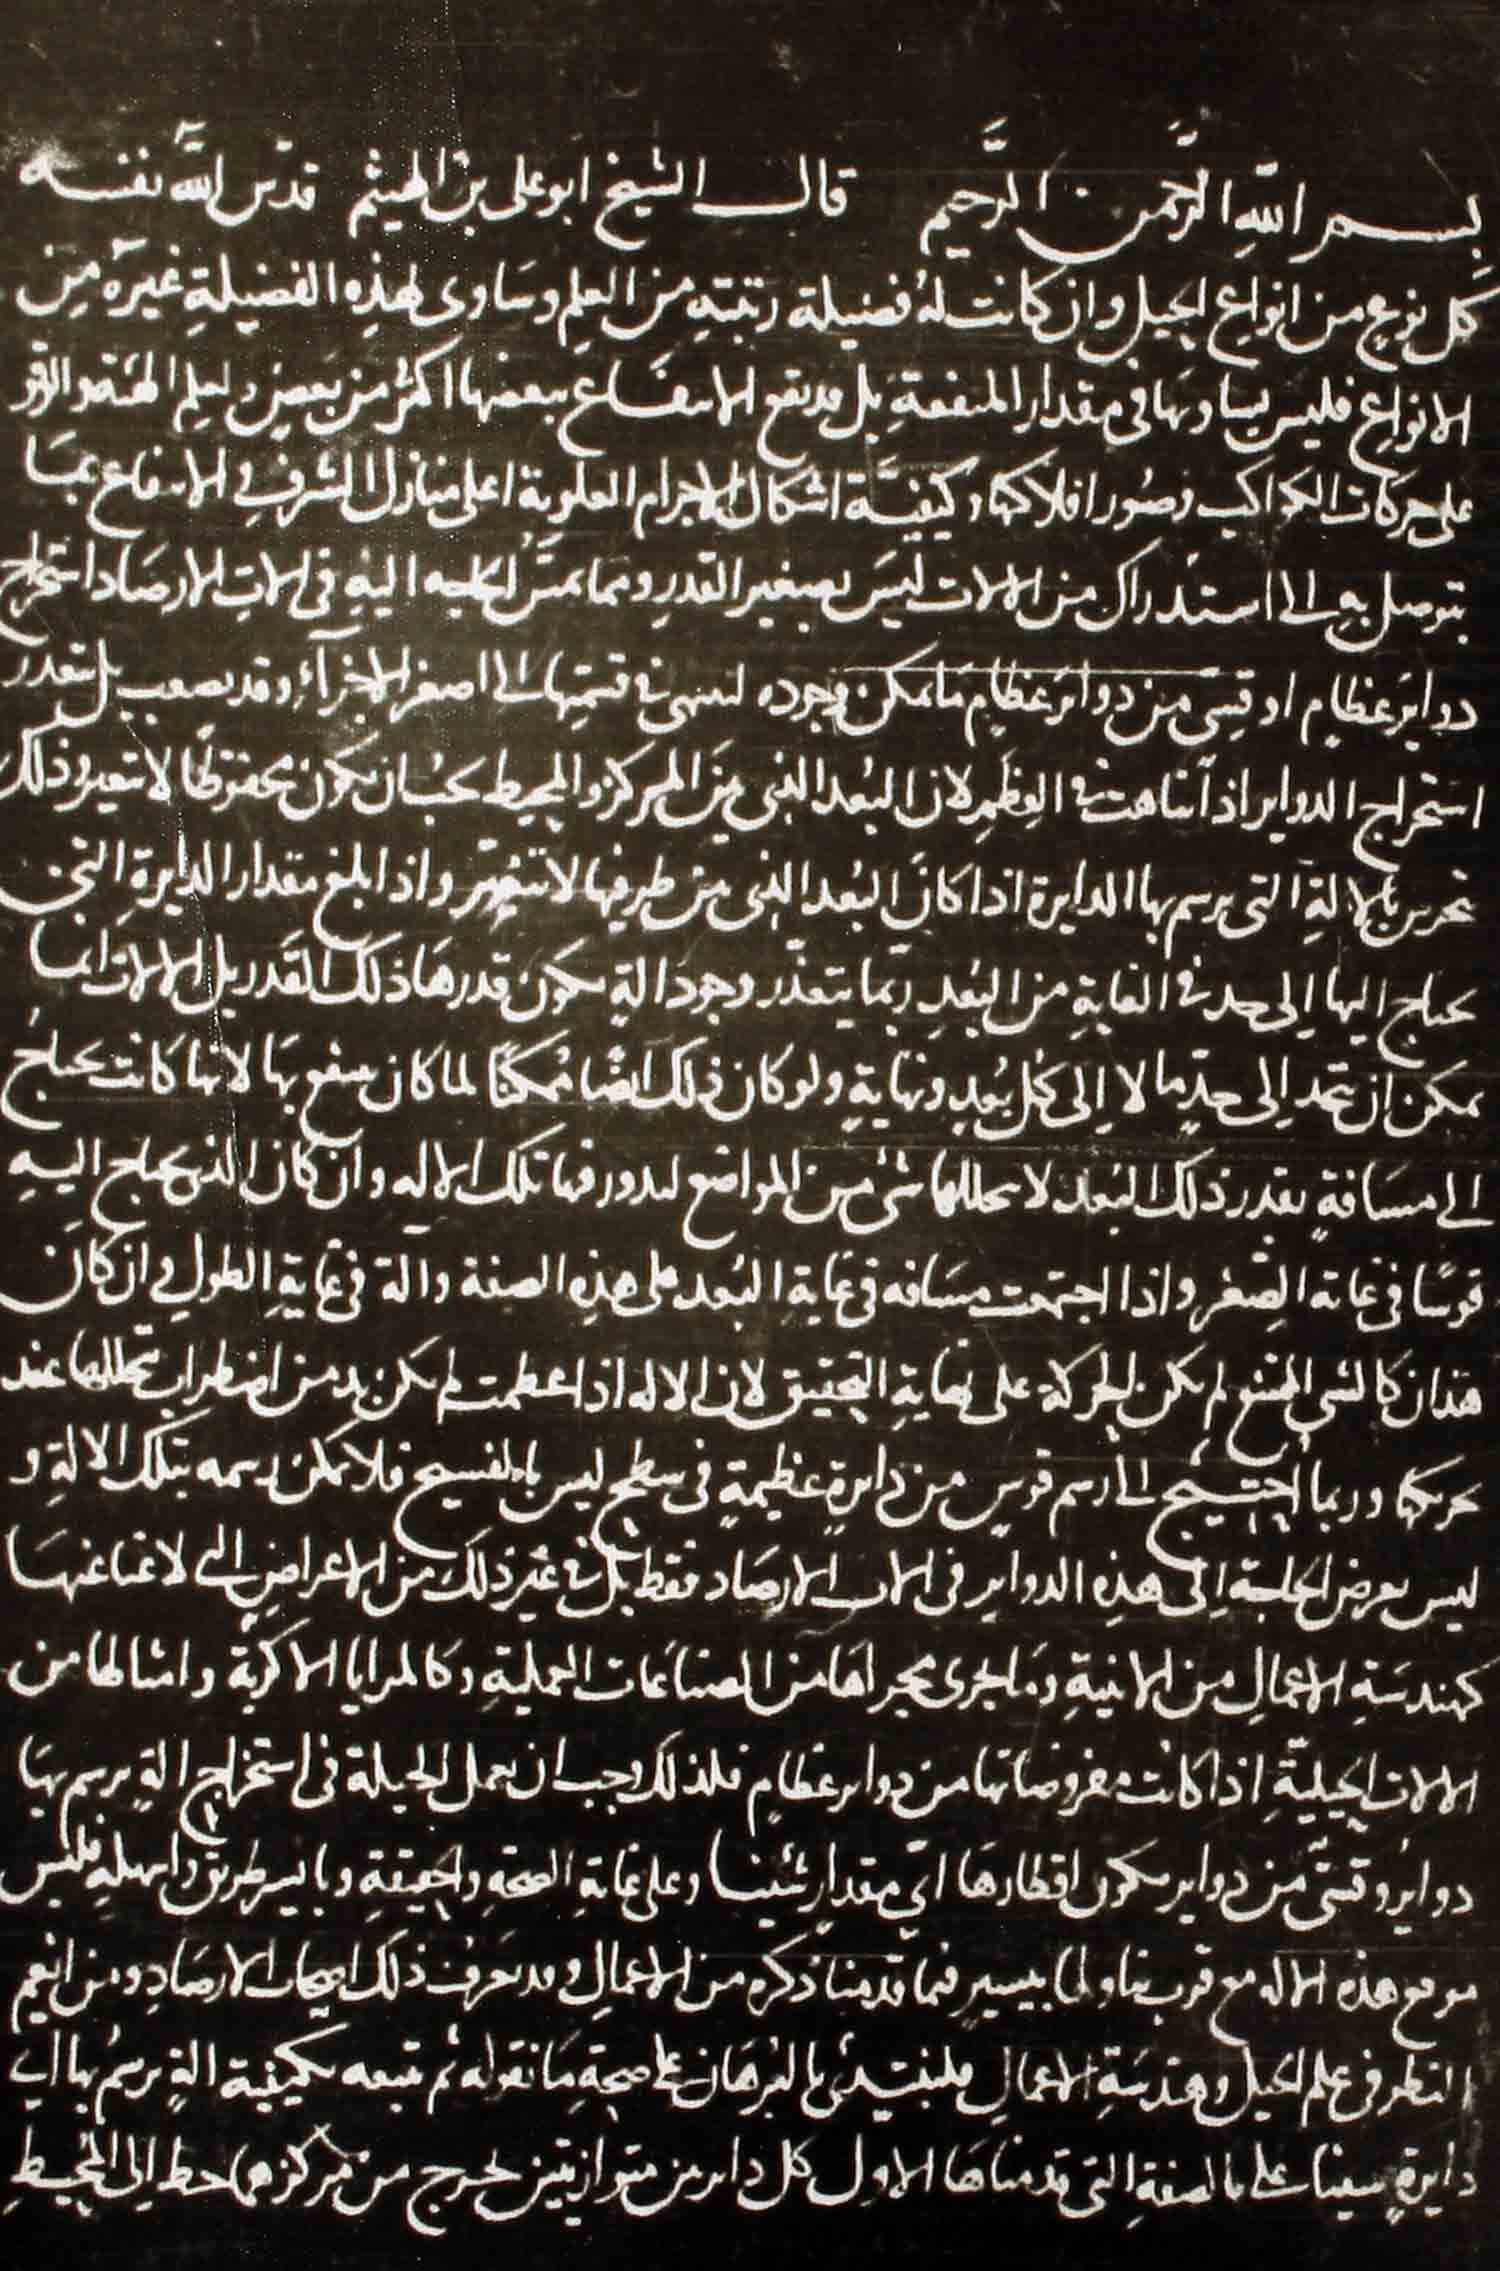 بسم الله الرحمن الرحيم قال الشيخ ابو على بن الهيثم قدس الله نفسه
كل نوع من انواع الحيل وان كانت له فضيلة رتبته من العلم وساوى لهذه الفضيلة غيره من
الانواع فليس يساويها فى مقدار المنفعة بل قد يقع الانتفاع ببعضها اكثر من بعض ولعلم الهيئة والوقوف
على حركات الكواكب وصور افلاكها وكيفية اشكال الاجرام العلوية اعلى منازل الشرف فى الانتفاع بما
يتوصل به الى استدراك من الالات ليس بصغير القدر ومما تمس الحاجه اليه فى الات الارصاد استخراج
دواير عظام او قسى من دواير عظام ما يمكن وجوده لينتهى فى قسمتها الى اصغر الاجزآء وقد يصعب بل يتعذر
استخراج الدواير اذا تناهت فى العظم لان البعد الذى بين المركز والمحيط يجب ان يكون محفوظا لا يتغير وذلك
تحرس بالالة التى يرسم بها الدايرة اذا كان البعد الذى من طرفيها لا يتغير واذا بلغ مقدار الدايرة التى
يحتاج اليها الى حد فى الغاية من البعد ربما يتعذر وجود الة يكون قدرها ذلك القدر بل الالات انما
يمكن ان تتخذ الى حد ما لا الى كل بعد ونهاية ولو كان ذلك ايضا ممكنا لما كان ينتفع بها لانها كانت يحتاج
الى مسافة بقدر ذلك البعد لا شئ من المواضع ليدور فيها تلك الاله وان كان الذى يحتاج اليه
قوسا فى غاية الصغر واذا اجتمعت مسافه فى غاية البعد على هذه الصفة والة فى غاية الطول وان كان
هذان كالشى الممتنع لم يكن الحركة على نهاية التحقيق لان الاله اذا عظمت لم يكن بد من اضطراب عند
حركتها وربما احتيج الى رسم قوس من دايرة عظيمة فى سطح ليس بالفسيح فلا يمكن رسمه بتلك الالة و
ليس يعرض الحاجة الى هذه الدواير فى الات الارصاد فقط بل فى غير ذلك من الاعراض التى لا غنا عنها
كهندسة الاعمال من الابنية وما جرى مجراها من الصناعات العملية وكالمرايا الاكرية وامثالها من
الالات الحيلية اذا كانت مفروضاتها من دواير عظام فلذلك وجب ان يعمل الحيلة فى استخراج الة يرسم بها
دواير وقسى من دواير يكون اقطارها اى مقدار شئنا وعلى غاية الصحة والحقيقة وبايسر طريق واسهله فليس
موقع هذه الاله مع قرب تناولها بيسير فيما قدمنا ذكره من الاعمال وقد يعرف ذلك اصحاب الارصاد ومن انعم
النظر فى علم الحيل وهندسة الاعمال فلنبتدئ بالبرهان على صحة ما نقوله ثم نتبعه بكيفية الة يرسم بها اى
دايرة شينا على الصفة التى قدمناها الاول كل دايرتين متوازيتين يخرج من مركزهما خط الى المحيط